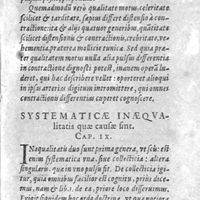 Quemadmodũ verò qualitate motus celeritate
scilicet & tarditate, sæpius differt distensio à con-
tractione: ita & alijs quatuor generibus, quãtitate
scilicet distensionis & contractionis, roboritate, ve-
hementia, præterea mollicie tunicæ. Sed quia præ-
ter qualitatem motus nulla alia pulsus differentia
in contractione dignosci potest, inanem operã lu-
deret, qui de his disserere vellet: oporteret alioqui
in ipsas arterias digitum intromittere, qui omnes
contractionis differentias caperet cognoscere.
SYSTEMATICÆ INÆQVA
litatis quæ causæ sint.
CAP. IX.
INæqualitatis duo sunt prima genera, vt scis: est
enim systematica vna, siue collecticia: altera
singularis, quæ in vno pulsu fit. De collecticia igi-
tur, quia omnibus facilior est cognitu, prius dice-
mus, nam & lib. 1. de ea, priore loco disseruimus.